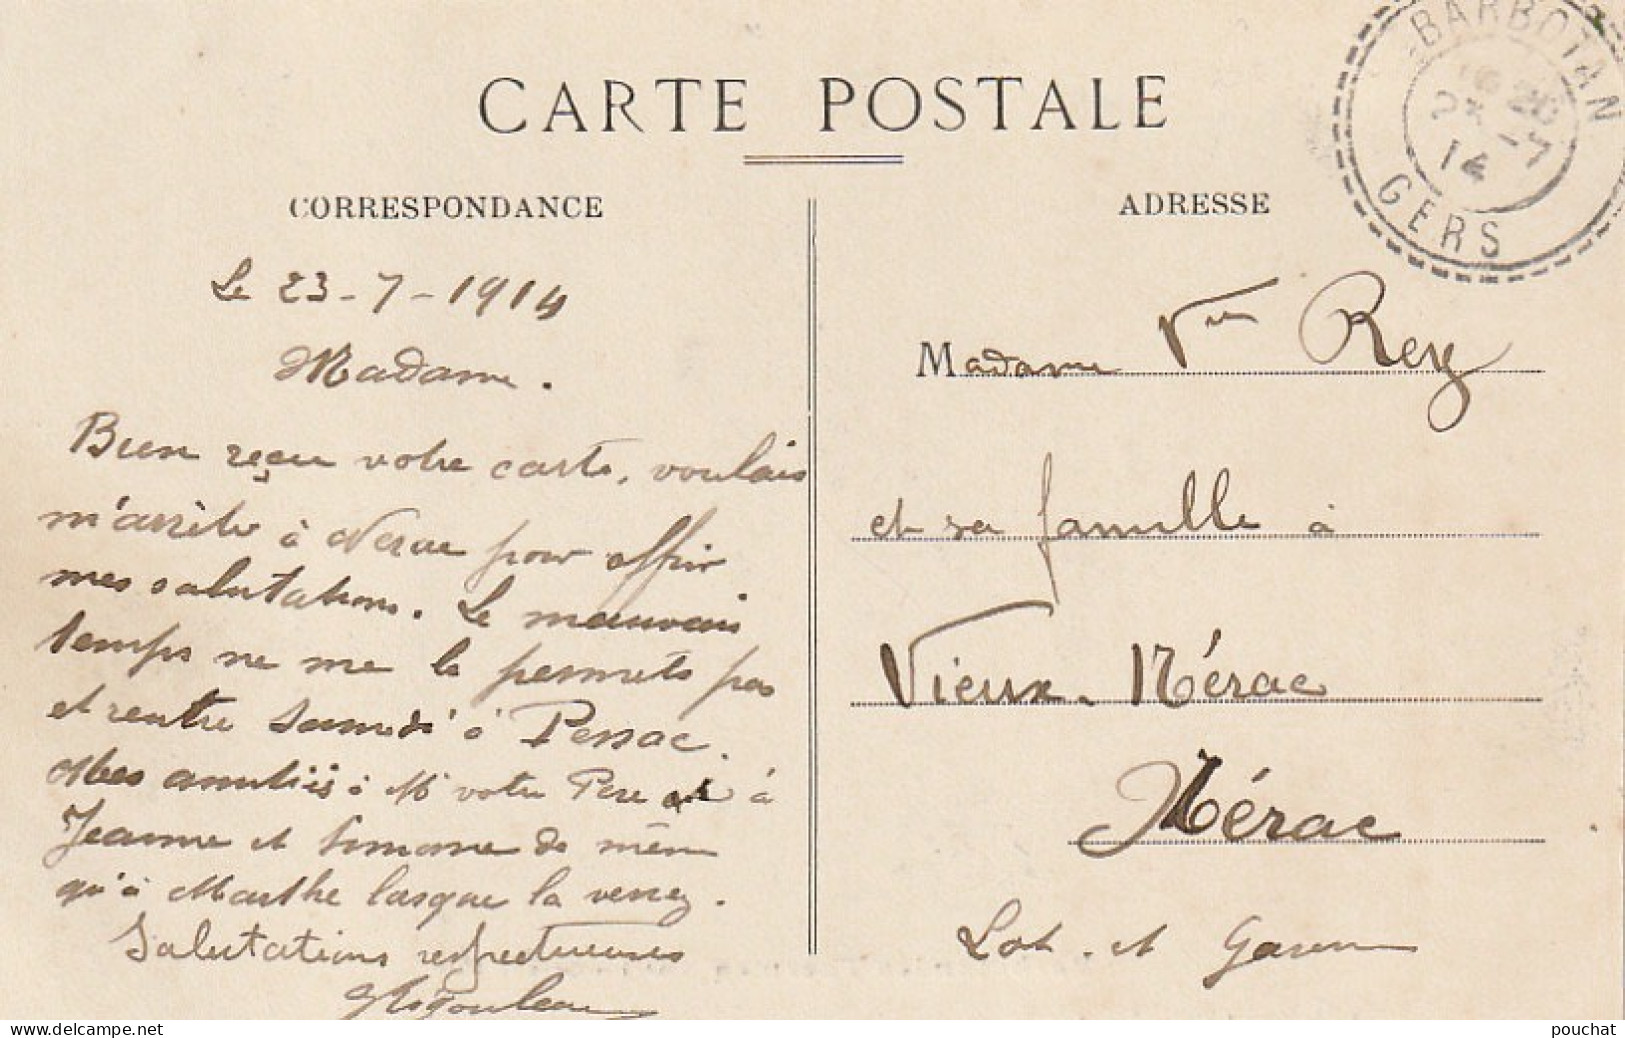 CARTE POSTALE
CORRESPONDANCE
Le 23-7-1914
Madame.
Bien reçu votre carte, voulais
m'arrêter à Nérac pour offrir
mes salutations. Le mauvais
temps ne me le permets pas
et rentre Samedi à Pessac.
Mes amitiés à Mr votre Père et à
Jeanne et Simone de même
qu'à Marthe lorsque la verrez.
Salutations respectueuses
ADRESSE
Madame Vve Rey
et sa famille à
Vieux-Nérac
Nérac
Lot-et Garonne
BARBOTAN
23 -7
14
GERS
www.delcampe.net
pouchat